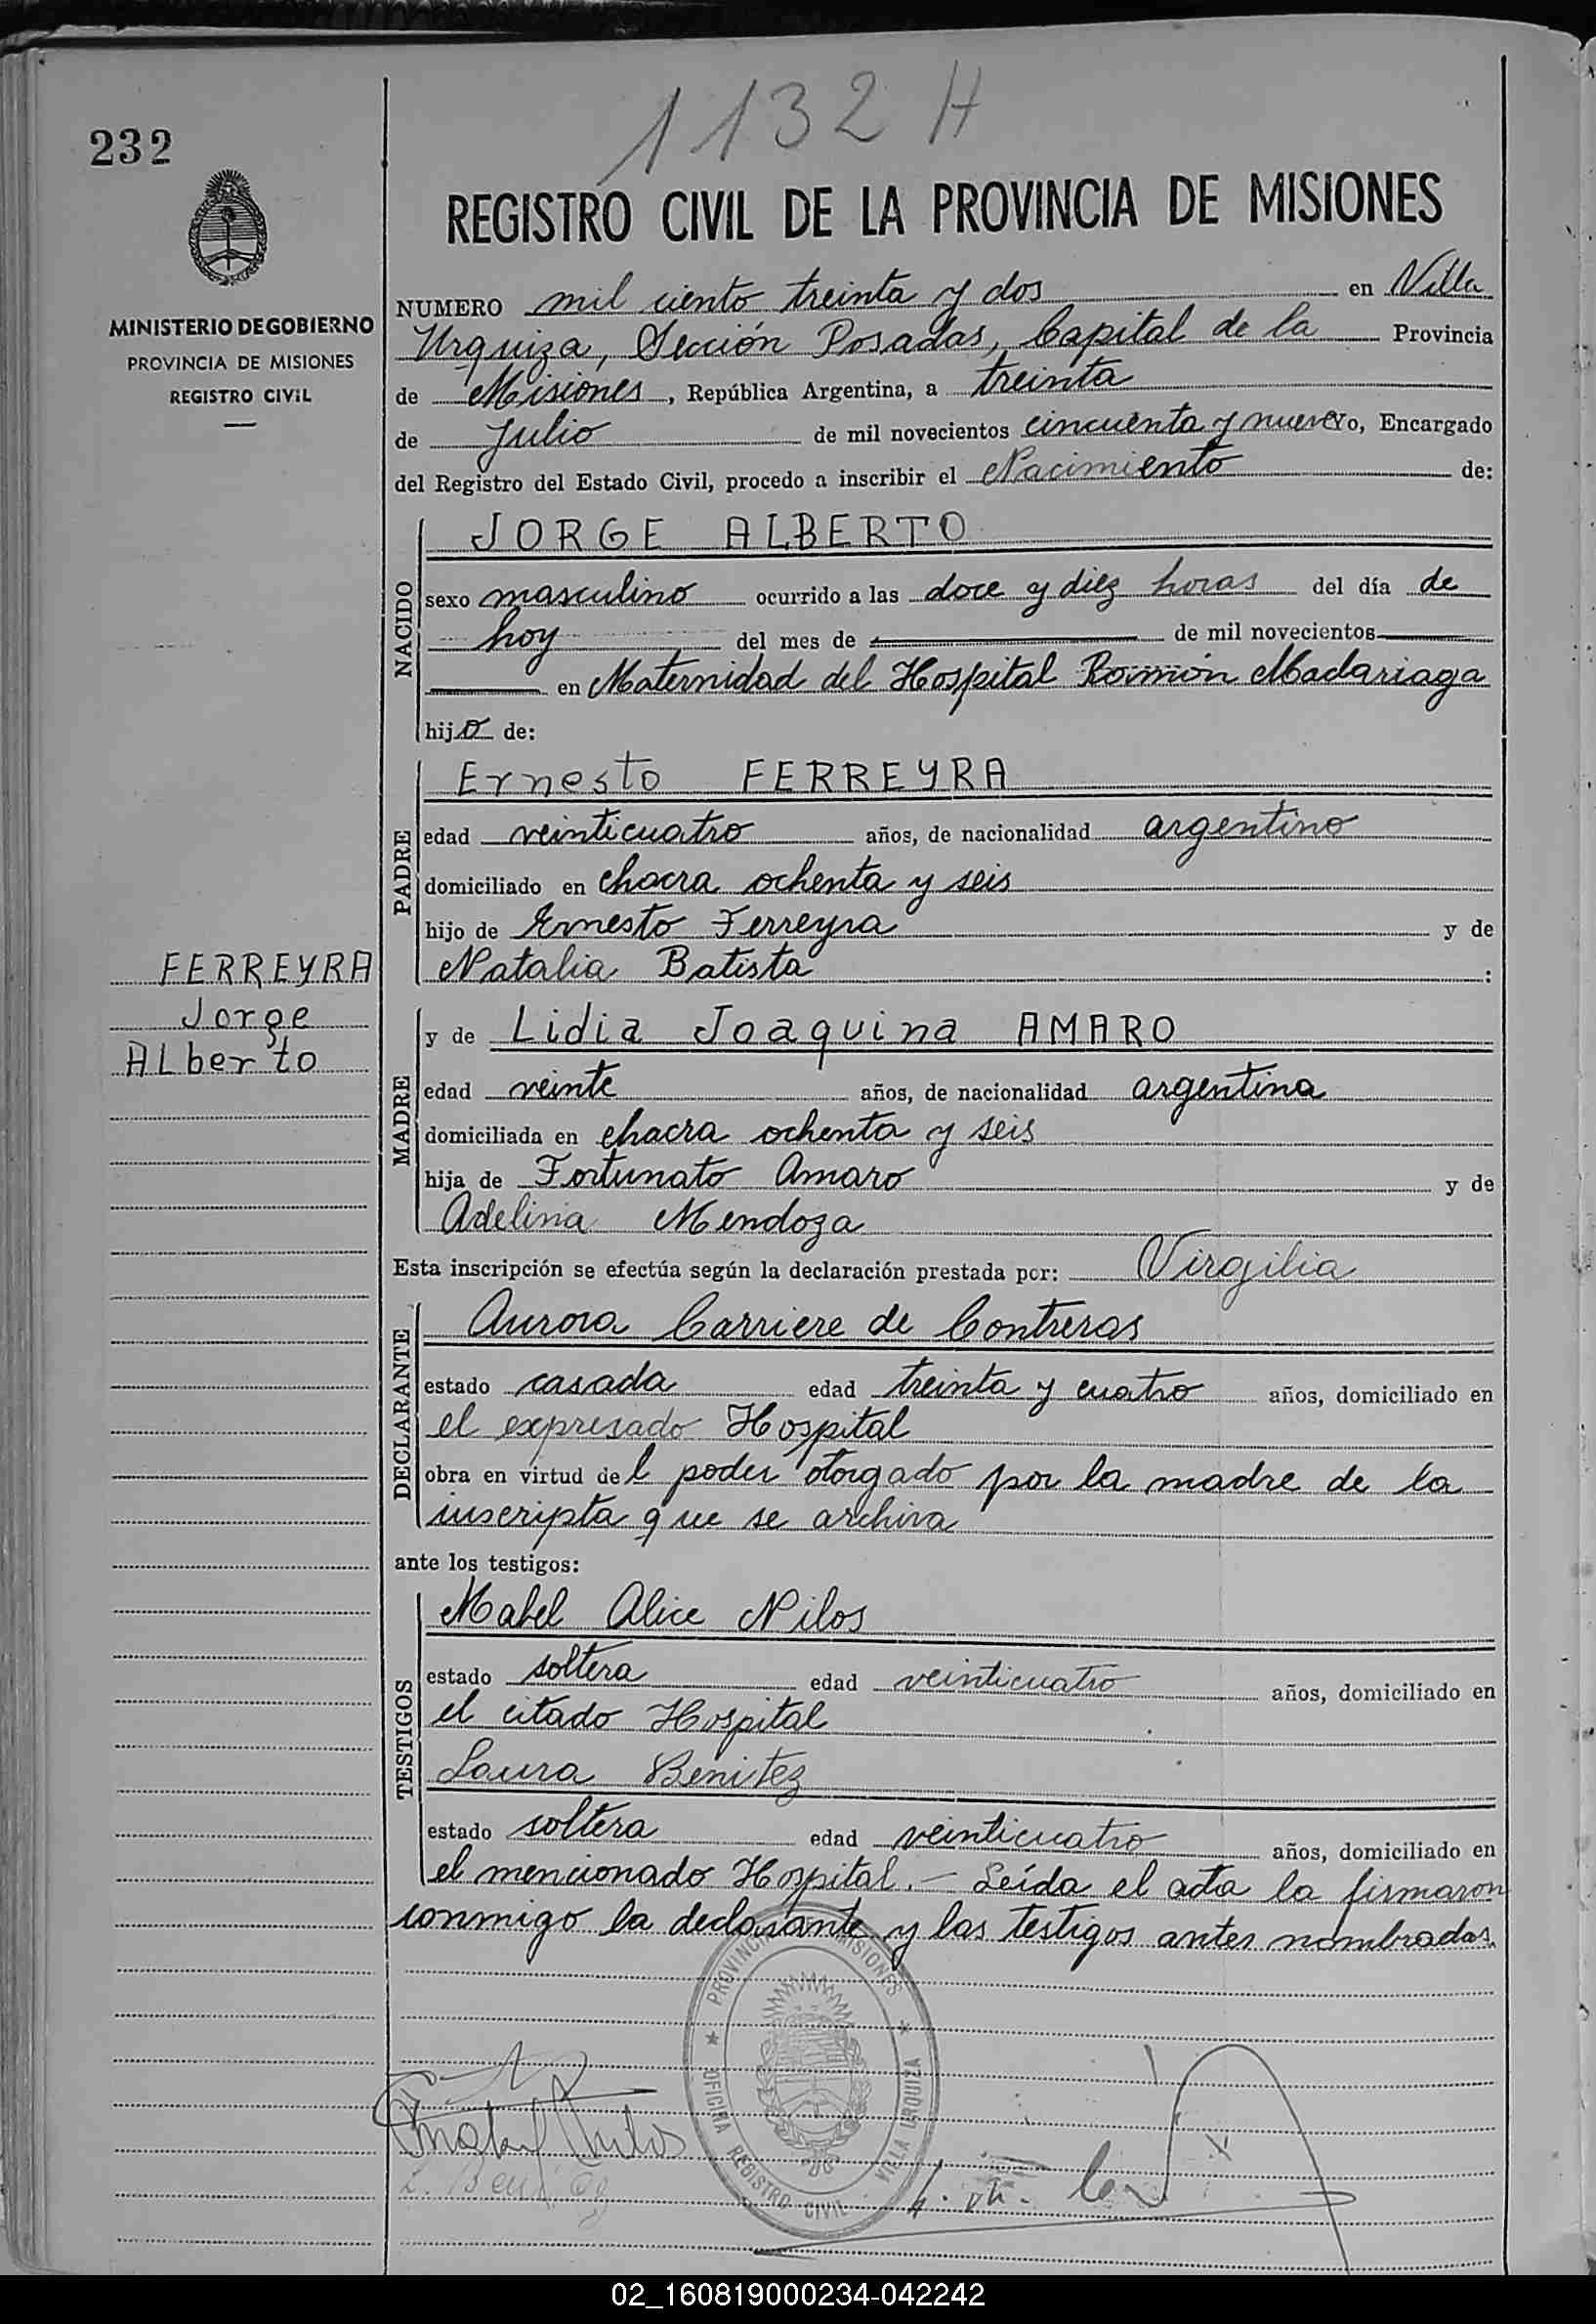 1132 H
232
REGISTRO CIVIL DE LA PROVINCIA DE MISIONES
MINISTERIO DE GOBIERNO
PROVINCIA DE MISIONES
REGISTRO CIVIL
NUMERO mil ciento treinta y dos en Villa
Urquiza, Sección Posadas, Capital de la Provincia
de Misiones, República Argentina, a treinta
de Julio de mil novecientos cincuenta y nueve yo, Encargado
del Registro del Estado Civil, procedo a inscribir el Nacimiento de:
NACIDO
JORGE ALBERTO
sexo masculino ocurrido a las doce y diez horas del día de
hoy del mes de de mil novecientos
en Maternidad del Hospital Ramón Madariaga
hijo de:
PADRE
Ernesto FERREYRA
edad veinticuatro años, de nacionalidad argentino
domiciliado en chacra ochenta y seis
hijo de Ernesto Ferreyra y de
Natalia Batista :
FERREYRA
Jorge
ALberto
MADRE
y de Lidia Joaquina AMARO
edad veinte años, de nacionalidad argentina
domiciliada en chacra ochenta y seis
hija de Fortunato Amaro y de
Adelina Mendoza
Esta inscripción se efectúa según la declaración prestada por: Virgilia
DECLARANTE
Aurora Carriere de Contreras
estado casada edad treinta y cuatro años, domiciliado en
el expresado Hospital
obra en virtud del poder otorgado por la madre de la
inscripta que se archiva
ante los testigos:
TESTIGOS
Mabel Alice Nilos
estado soltera edad veinticuatro años, domiciliado en
el citado Hospital
Laura Benitez
estado soltera edad veinticuatro años, domiciliado en
el mencionado Hospital.- Leída el acta la firmaron
conmigo la declarante y las testigos antes nombradas.
PROVINCIA MISIONES
OFICINA REGISTRO CIVIL VILLA URQUIZA
02_160819000234-042242